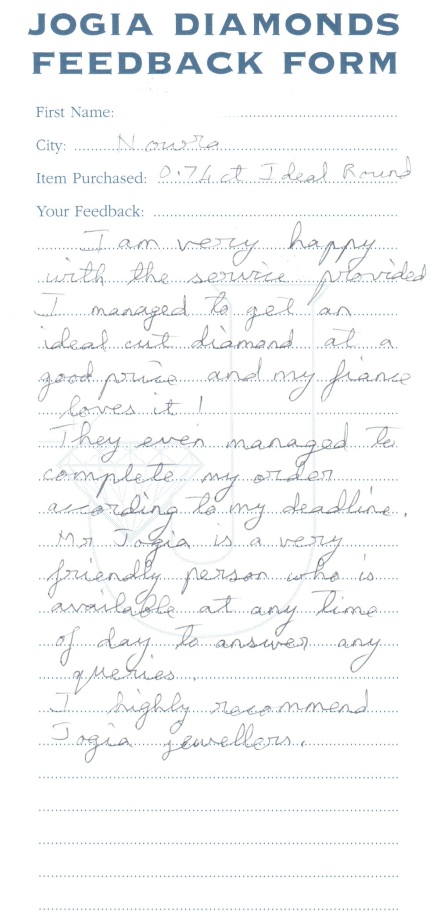 JOGIA DIAMONDS
FEEDBACK FORM
First Name:
City: Nowra
Item Purchased: 0.74 ct Ideal Round
Your Feedback:
I am very happy
with the service provided
I managed to get an
ideal cut diamond at a
good price and my fiance
loves it!
They even managed to
complete my order
according to my deadline.
Mr Jogia is a very
friendly person who is
available at any time
of day to answer any
queries.
I highly recommend
Jogia jewellers.